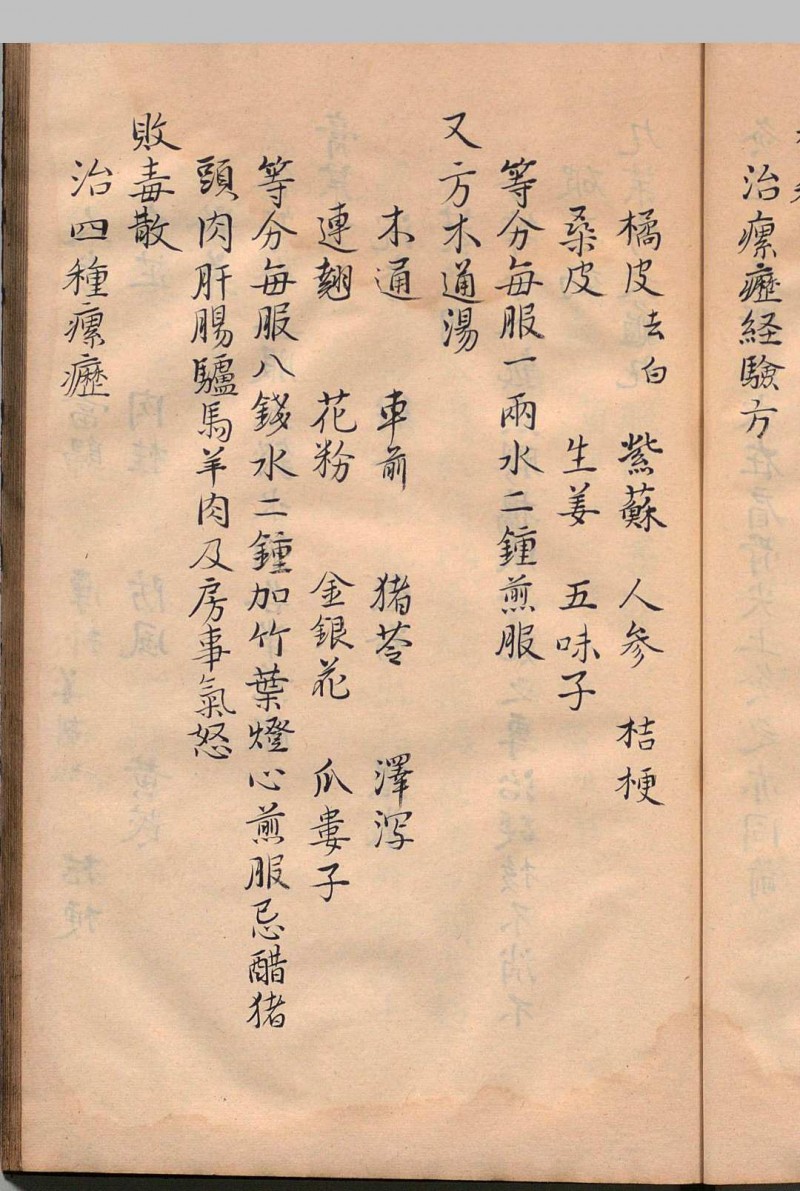 治瘰癧経驗方
橘皮去白 紫蘇 人參 桔梗
桑皮 生姜 五味子
等分每服一兩水二鍾煎服
又方木通湯
木通 車前 猪苓 澤瀉
連翹 花粉 金銀花 瓜蔞子
等分每服八錢水二鍾加竹葉燈心煎服忌醋猪
頭肉肝腸驢馬羊肉及房事氣怒
敗毒散
治四種瘰癧